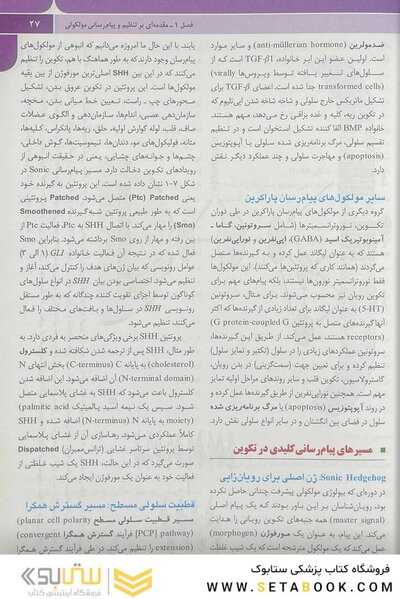 فصل ۱ ـ مقدمه‌ای بر تنظیم و پیام‌رسانی مولکولی
۲۷
ضدمولرین (anti-müllerian hormone) و سایر موارد
است. اولین عضو این ابر خانواده، TGF-β1 است که از
سلول‌های تغییر یافته توسط ویروس‌ها (virally
transformed cells) جدا شده است. اعضای TGF-β برای
تشکیل ماتریکس خارج سلولی و شاخه شاخه شدن اپی‌تلیوم که
در تکوین ریه، کلیه و غدد بزاقی رخ می‌دهد، مهم هستند.
خانواده BMP القا کننده تشکیل استخوان است و در تنظیم
تقسیم سلولی، مرگ برنامه‌ریزی شده سلولی یا آپوپتوزیس
(apoptosis) و مهاجرت سلولی و چند عملکرد دیگر نقش
دارد.
سایر مولکول‌های پیام‌رسان پاراکرین
گروه دیگری از مولکول‌های پیام‌رسان پاراکرین در طی دوران
تکوین، نوروترانسمیترها (شامل سروتونین، گاما ـ
آمینوبوتیریک اسید (GABA)، اپی‌نفرین و نوراپی‌نفرین)
هستند که به عنوان لیگاند عمل کرده و به گیرنده‌ها متصل
می‌گردند (همانند کاری که پروتئین‌ها می‌کنند). این مولکول‌ها
فقط نوروترانسمیتر نورون‌ها نیستند، بلکه پیام‌های مهم برای
تکوین رویان نیز محسوب می‌شوند. برای مثال، سروتونین
(5-HT) به عنوان لیگاند برای تعداد زیادی از گیرنده‌ها که اکثر
آنها گیرنده‌های متصل به پروتئین G (G protein-coupled
receptors) هستند، عمل می‌کند. از طریق این گیرنده‌ها،
سروتونین عملکردهای زیادی را در سلول (تکثیر و تمایز سلول)
تنظیم کرده و برای تعیین جهت (سمت‌گزینی) در بدن رویان،
گاسترولاسیون، تکوین قلب و سایر روندهای مراحل اولیه تمایز
مهم است. همچنین نوراپی‌نفرین از طریق گیرنده‌ها عمل کرده و
در روند آپوپتوزیس (apoptosis) یا مرگ برنامه‌ریزی شده
سلول در فضای بین انگشتان و در سایر انواع سلولی نقش دارد.
مسیرهای پیام‌رسانی کلیدی در تکوین
Sonic Hedgehog: ژن اصلی برای رویان‌زایی
در دوره‌ای که بیولوژی مولکولی پیشرفت چندانی حاصل نکرده
بود، رویان‌شناسان بر این باور بودند که یک پیام‌رسان اصلی
(master signal) همه جنبه‌های تکوین رویانی را هدایت
می‌کند. این پیام، به عنوان یک مورفوژن (morphogen)
عمل می‌کند که یک مولکول مترشحه است که یک شیب غلظت
یابند. با این حال ما امروزه می‌دانیم که انبوهی از مولکول‌های
پیام‌رسان وجود دارند که به طور هماهنگ با هم، تکوین را تنظیم
می‌کنند که در این بین SHH اصلی‌ترین مورفوژن از بین بقیه
مولکول‌ها است. این پروتئین در تکوین عروق بدن، تشکیل
محورهای چپ ـ راست، تعیین خط میانی بدن، مخچه،
سازمان‌دهی عصبی، اندام‌ها، سازمان‌دهی و الگوی عضلات
صاف، قلب، لوله گوارش اولیه، حلق، ریه‌ها، پانکراس، کلیه‌ها،
مثانه، فولیکول‌های مو، دندان‌ها، تیموسیت‌ها، گوش داخلی،
چشم‌ها و جوانه‌های چشایی، یعنی در حقیقت انبوهی از
رویدادهای تکوین دخالت دارد. مسیر پیام‌رسانی Sonic در
شکل ۷–۱ نشان داده شده است. این پروتئین به گیرنده خود
یعنی Patched (Ptc) متصل می‌شود. Patched پروتئینی
است که به طور طبیعی پروتئین شبه‌گیرنده Smoothened
(Smo) را مهار می‌کند. با اتصال SHH به Ptc، فعالیت Ptc از
بین رفته و مهار از روی Smo برداشته می‌شود. بنابراین Smo
فعال شده که در نتیجه آن فعالیت خانواده GLI (۱ الی ۳)
عوامل رونویسی که بیان ژن‌های هدف را کنترل می‌کند، آغاز و
تنظیم می‌شود. اختصاصی بودن بیان SHH در انواع سلول‌های
گوناگون توسط اجزای تقویت کننده چندگانه که به طور مستقل
رونویسی SHH در سلول‌ها و بافت‌های مختلف را فعال
می‌کنند، تنظیم می‌شود.
پروتئین SHH برخی ویژگی‌های منحصر به فردی دارد. به
طور مثال، SHH پس از ترجمه شدن شکافته شده و کلسترول
(cholesterol) به پایانه C (C-terminus) بخش انتهای N
(N-terminal domain) آن اضافه می‌شود. این اضافه شدن
کلسترول باعث می‌شود که SHH به غشای پلاسمایی متصل
شود. سپس یک نیمه اسید پالمیتیک (palmitic acid
moiety) به پایانه N (N-terminus) اضافه شده و SHH
کاملاً عملکردی می‌شود. رهاسازی آن از غشای پلاسمایی
توسط پروتئین سرتاسر غشایی (ترانس‌ممبران) Dispatched
صورت می‌گیرد که در این حالت، SHH یک شیب غلظتی از
فعالیت خود به عنوان یک مورفوژن ایجاد می‌کند.
قطبیت سلولی مسطح: مسیر گسترش همگرا
مسیر قطبیت سلولی مسطح (planar cell polarity
[PCP] pathway) فرآیند گسترش همگرا (convergent
extension) را تنظیم می‌کند. در طی فرآیند گسترش همگرا
ستابوک
فروشگاه اینترنتی کتاب
فروشگاه کتاب پزشکی ستابوک
WWW.SETABOOK.COM